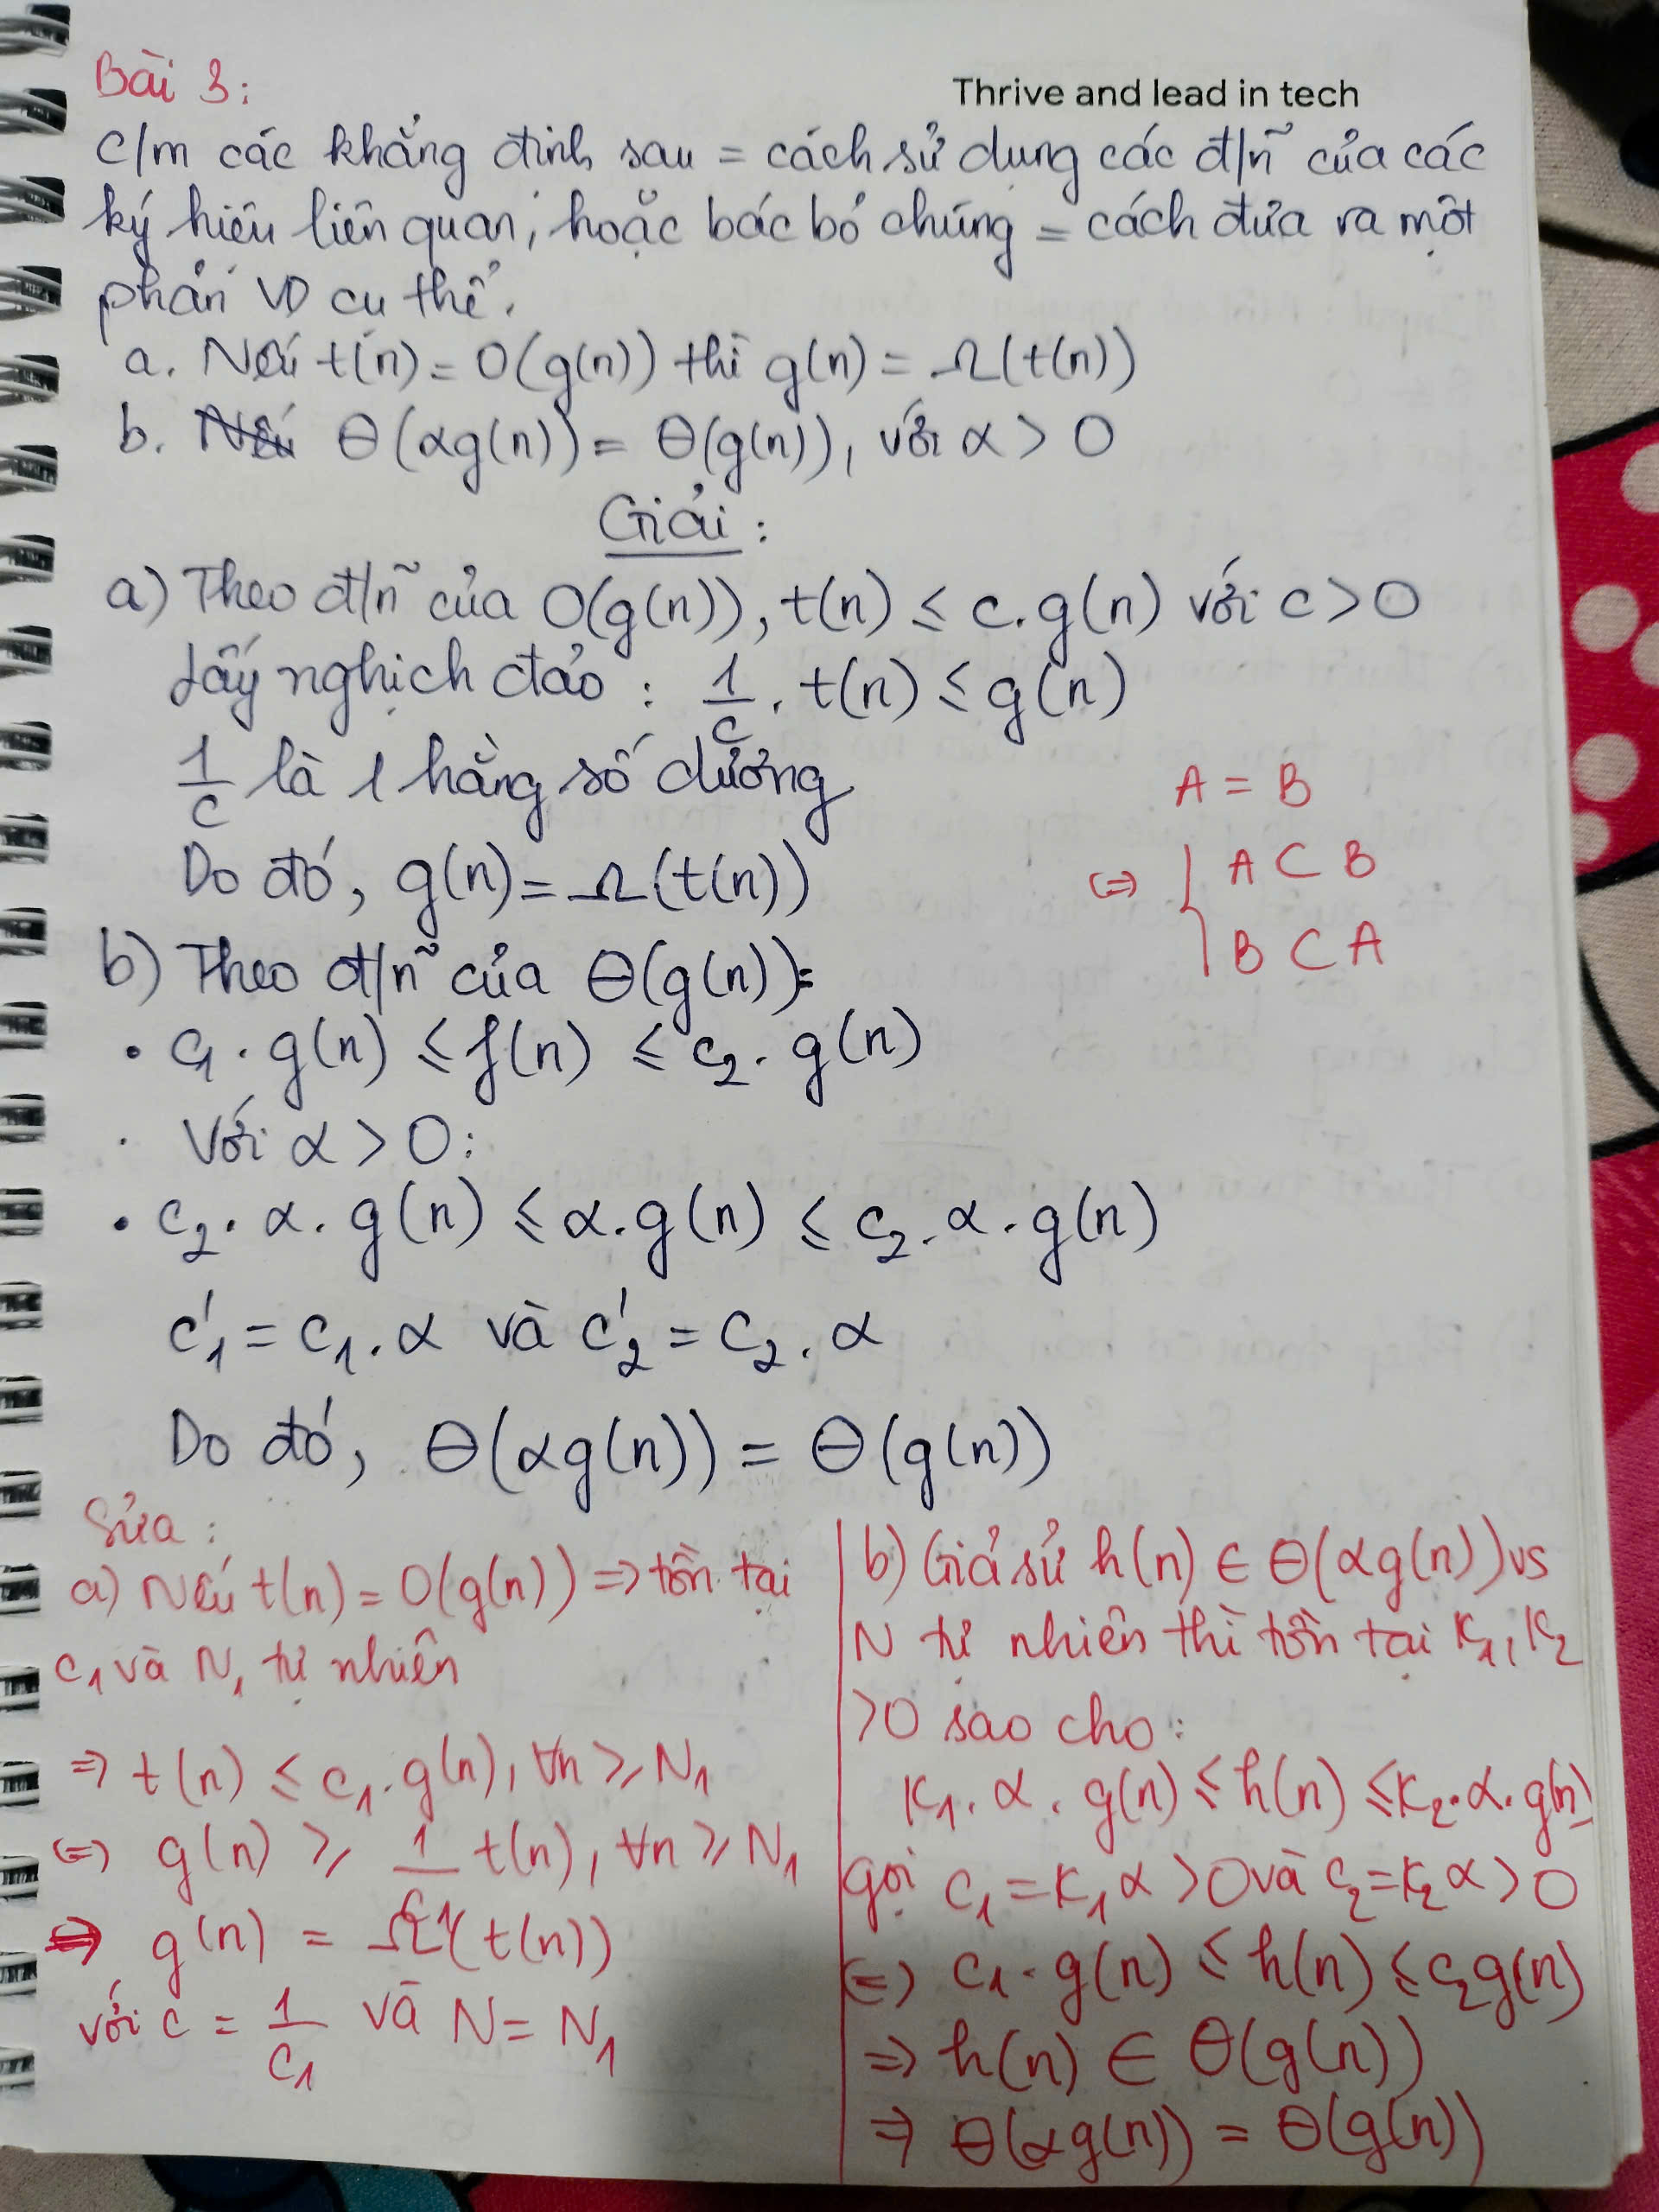 Bài 3:
Thrive and lead in tech
C/m các khẳng định sau = cách sử dụng các đ/n~ của các
ký hiệu liên quan, hoặc bác bỏ chúng = cách đưa ra một
phản VD cụ thể.
a. Nếu t(n) = O(g(n)) thì g(n) = Ω(t(n))
b. Nếu Θ(αg(n)) = Θ(g(n)), với α > 0
Giải:
a) Theo đ/n~ của O(g(n)), t(n) ≤ c.g(n) với c > 0
Lấy nghịch đảo: 1/c . t(n) ≤ g(n)
1/c là 1 hằng số dương
Do đó, g(n) = Ω(t(n))
A = B
⇔ { A ⊂ B
B ⊂ A
b) Theo đ/n~ của Θ(g(n)):
• c₁ . g(n) ≤ f(n) ≤ c₂ . g(n)
. Với α > 0:
• c₂ . α . g(n) ≤ α . g(n) ≤ c₂ . α . g(n)
c'₁ = c₁ . α và c'₂ = c₂ . α
Do đó, Θ(αg(n)) = Θ(g(n))
Sửa:
a) Nếu t(n) = O(g(n)) ⇒ tồn tại
c₁ và N₁ tự nhiên
⇒ t(n) ≤ c₁ . g(n), ∀n ≥ N₁
⇔ g(n) ≥ 1/c₁ t(n), ∀n ≥ N₁
⇒ g(n) = Ω(t(n))
với c = 1/c₁ và N = N₁
b) Giả sử h(n) ∈ Θ(αg(n)) vs
N tự nhiên thì tồn tại K₁, K₂
>0 sao cho:
K₁ . α . g(n) ≤ h(n) ≤ K₂ . α . g(n)
gọi c₁ = K₁α > 0 và c₂ = K₂α > 0
⇔ c₁ . g(n) ≤ h(n) ≤ c₂g(n)
⇒ h(n) ∈ Θ(g(n))
⇒ Θ(αg(n)) = Θ(g(n))